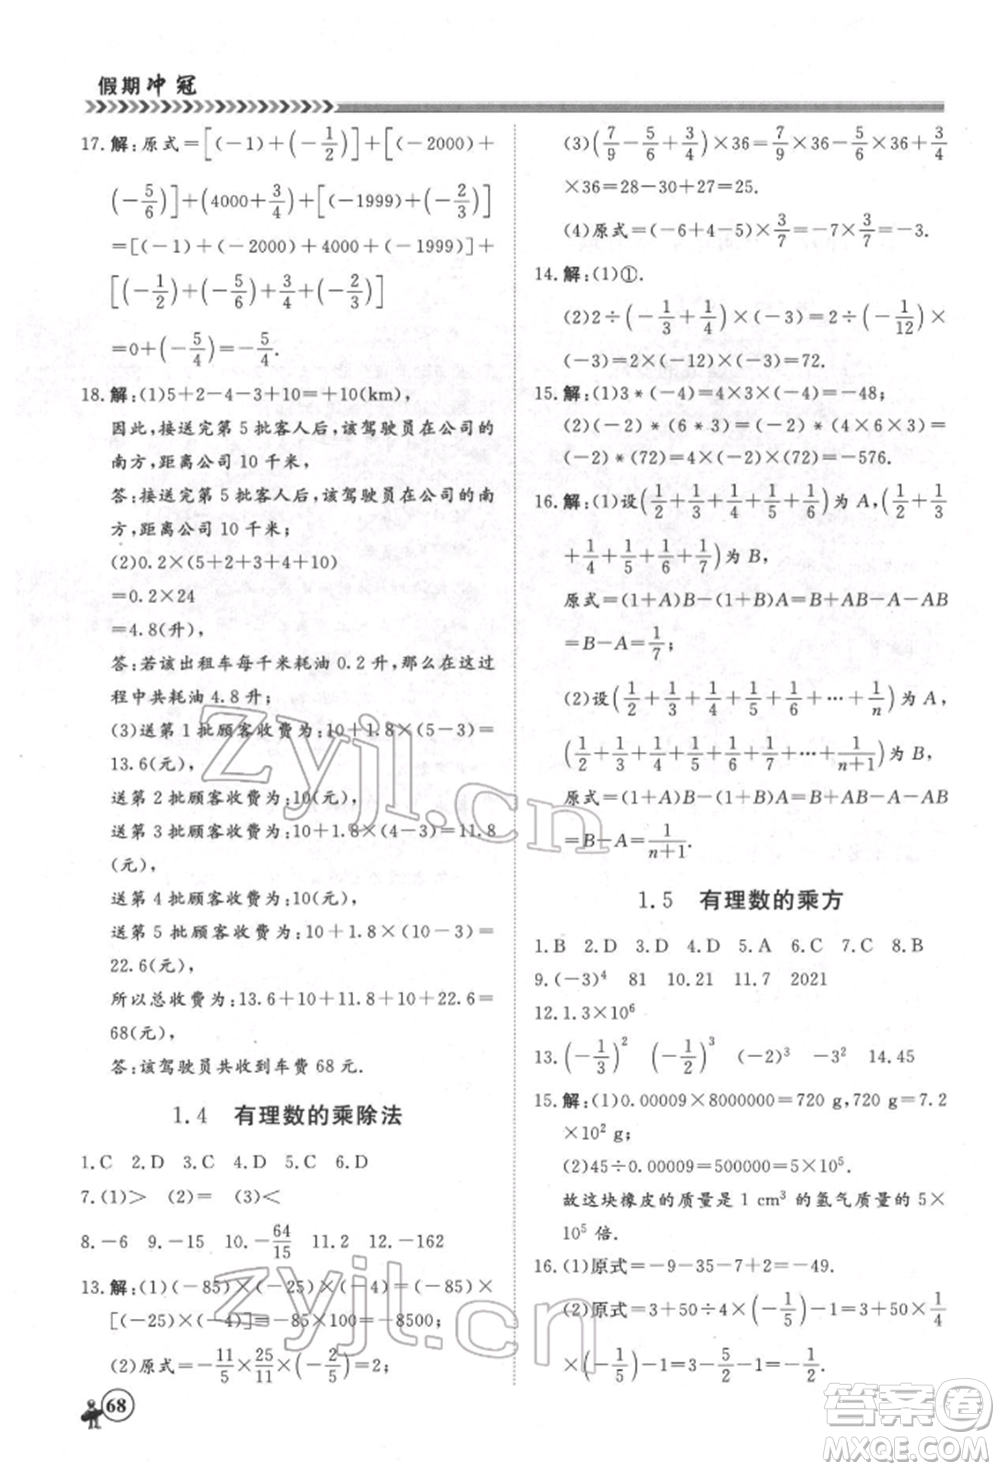 假期冲冠
17.解:原式=[(-1)+(-1/2)]+[(-2000)+
(-5/6)]+(4000+3/4)+[(-1999)+(-2/3)]
=[(-1)+(-2000)+4000+(-1999)]+
[(-1/2)+(-5/6)+3/4+(-2/3)]
=0+(-5/4)=-5/4.
18.解:(1)5+2-4-3+10=+10(km),
因此,接送完第 5 批客人后,该驾驶员在公司的
南方,距离公司 10 千米,
答:接送完第 5 批客人后,该驾驶员在公司的南
方,距离公司 10 千米;
(2)0.2×(5+2+3+4+10)
=0.2×24
=4.8(升),
答:若该出租车每千米耗油 0.2 升,那么在这过
程中共耗油 4.8 升.
(3)送第 1 批顾客收费为:10+1.8×(5-3)=
13.6(元),
送第 2 批顾客收费为:10(元),
送第 3 批顾客收费为:10+1.8×(4-3)=11.8
(元),
送第 4 批顾客收费为:10(元),
送第 5 批顾客收费为:10+1.8×(10-3)=
22.6(元),
所以总收费为:13.6+10+11.8+10+22.6=
68(元),
答:该驾驶员共收到车费 68 元.
1.4 有理数的乘除法
1.C 2.D 3.B 4.C 5.C 6.D
7.(1)> (2)= (3)<
8.-6 9.-15 10.-64/15 11.2 12.-162
13.解:(1)(-85)×(-25)×(-4)=(-85)×
[(-25)×(-4)]=-85×100=-8500;
(2)原式=-11/5×25/11×(-2/5)=2;
68
(3)(7/9-5/6+3/4)×36=7/9×36-5/6×36+3/4
×36=28-30+27=25.
(4)原式=(-6+4-5)×3/7=-7×3/7=-3.
14.解:(1)①.
(2)2÷(-1/3+1/4)×(-3)=2÷(-1/12)×
(-3)=2×(-12)×(-3)=72.
15.解:(1)3*(-4)=4×3×(-4)=-48;
(2)(-2)*(6*3)=(-2)*(4×6×3)=
(-2)*(72)=4×(-2)×(72)=-576.
16.解:(1)设(1/2+1/3+1/4+1/5+1/6)为 A,(1/2+1/3
+1/4+1/5+1/6+1/7)为 B,
原式=(1+A)B-(1+B)A=B+AB-A-AB
=B-A=1/7;
(2)设(1/2+1/3+1/4+1/5+1/6+…+1/n)为 A,
(1/2+1/3+1/4+1/5+1/6+…+1/(n+1))为 B,
原式=(1+A)B-(1+B)A=B+AB-A-AB
=B-A=1/(n+1).
1.5 有理数的乘方
1.B 2.D 3.D 4.D 5.A 6.C 7.C 8.B
9.(-3)⁴ 81 10.21 11.7 2021
12.1.3×10⁶
13.(-1/3)² (-1/2)³ (-2)³ -3² 14.45
15.解:(1)0.00009×8000000=720 g,720 g=7.2
×10² g;
(2)45÷0.00009=500000=5×10⁵,
故这块橡皮的质量是 1 cm³ 的氢气质量的 5×
10⁵ 倍.
16.(1)原式=-9-35-7+10=-41.
(2)原式=3+50÷4×(-1/5)-1=3+50×1/4
×(-1/5)-1=3-5/2-1=-1/2.
zyjl.cn
zyjl.cn
答案圈
MXQE.COM